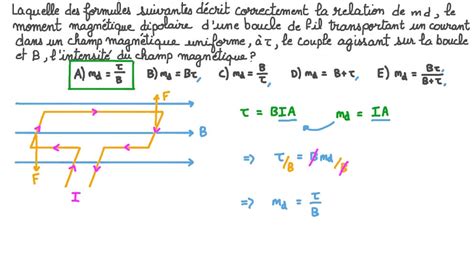 Laquelle des formules suivantes décrit correctement la relation de md, le
moment magnétique dipolaire d'une boucle de fil transportant un courant
dans un champ magnétique uniforme, à τ, le couple agissant sur la boucle
et B, l'intensité du champ magnétique ?
A) md = τ/B B) md = Bτ, C) md = B/τ, D) md = B+τ, E) md = Bτ/B+τ,
F
B
F
I
τ = BIA md = IA
⇒ τ/B = Bmd/B
⇒ md = τ/B